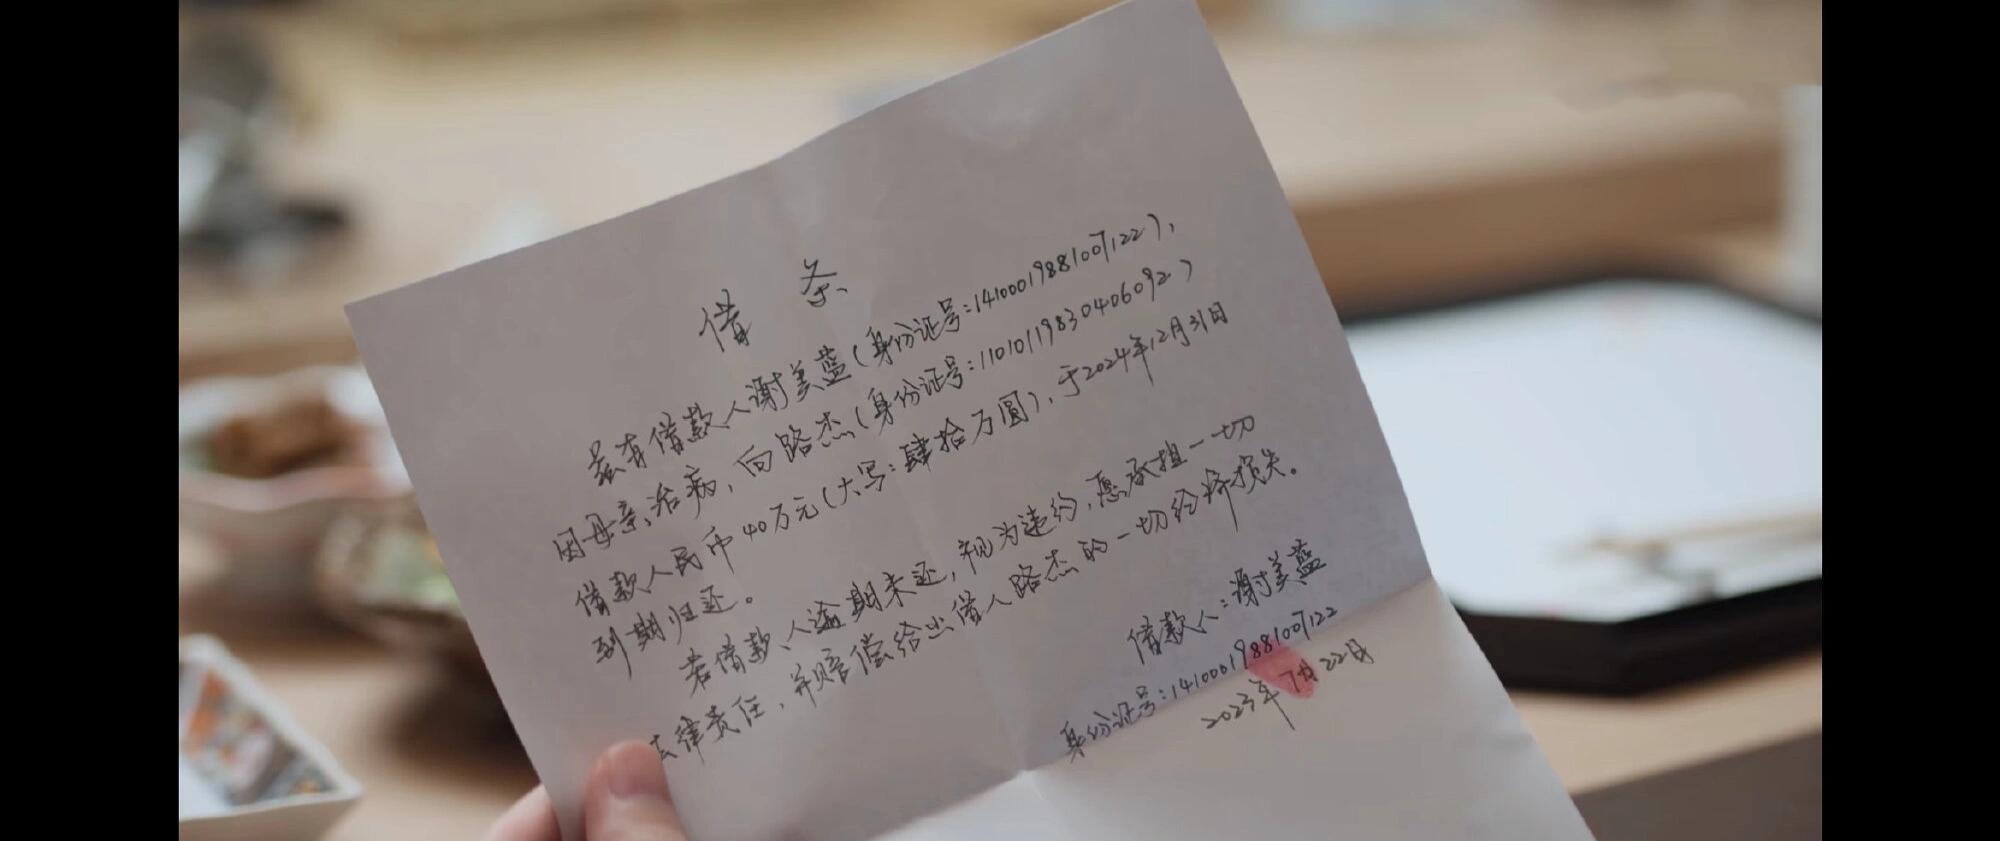 借条
兹有借款人谢美蓝(身份证号:14100019881007122),
因母亲治病,向路杰(身份证号:11010119830406092)
借款人民币40万元(大写:肆拾万圆),于2024年12月31日
到期归还。
若借款人逾期未还,视为违约,愿承担一切
法律责任,并赔偿给出借人路杰的一切经济损失。
借款人:谢美蓝
身份证号:14100019881007122
2023年7月22日